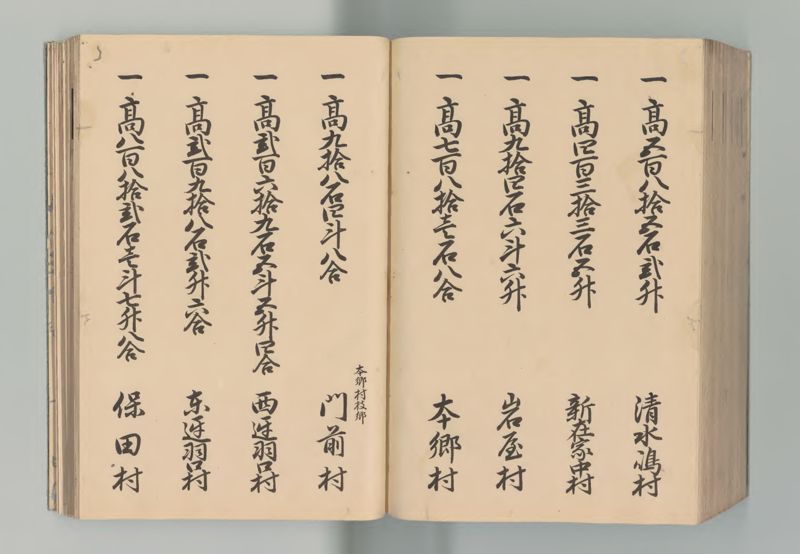 一 高五百八拾五石弐升 清水嶋村
一 高四百三拾三石五升 新在家中村
一 高九拾四石六斗六升 岩屋村
一 高七百八拾壱石八合 本郷村
一 高九拾八石四斗八合 本郷村枝郷 門前村
一 高弐百六拾九石五斗五升四合 西迯羽口村
一 高弐百九拾八石弐升六合 東迯羽口村
一 高八百八拾弐石壱斗七升八合 保田村